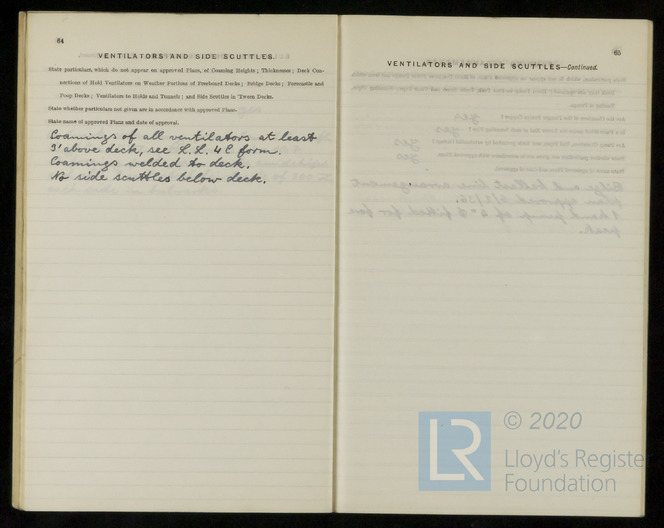 64
VENTILATORS AND SIDE SCUTTLES.
State particulars, which do not appear on approved Plans, of Coaming Heights; Thicknesses; Deck Con-
nections of Hold Ventilators on Weather Portions of Freeboard Decks; Bridge Decks; Forecastle and
Poop Decks; Ventilators to Holds and Tunnels; and Side Scuttles in 'Tween Decks.
State whether particulars not given are in accordance with approved Plans.
State name of approved Plans and date of approval.
Coamings of all ventilators at least
3' above deck, see L.L. 4 C form.
Coamings welded to deck.
No side scuttles below deck.
65
VENTILATORS AND SIDE SCUTTLES—Continued.
© 2020
LR
Lloyd's Register
Foundation